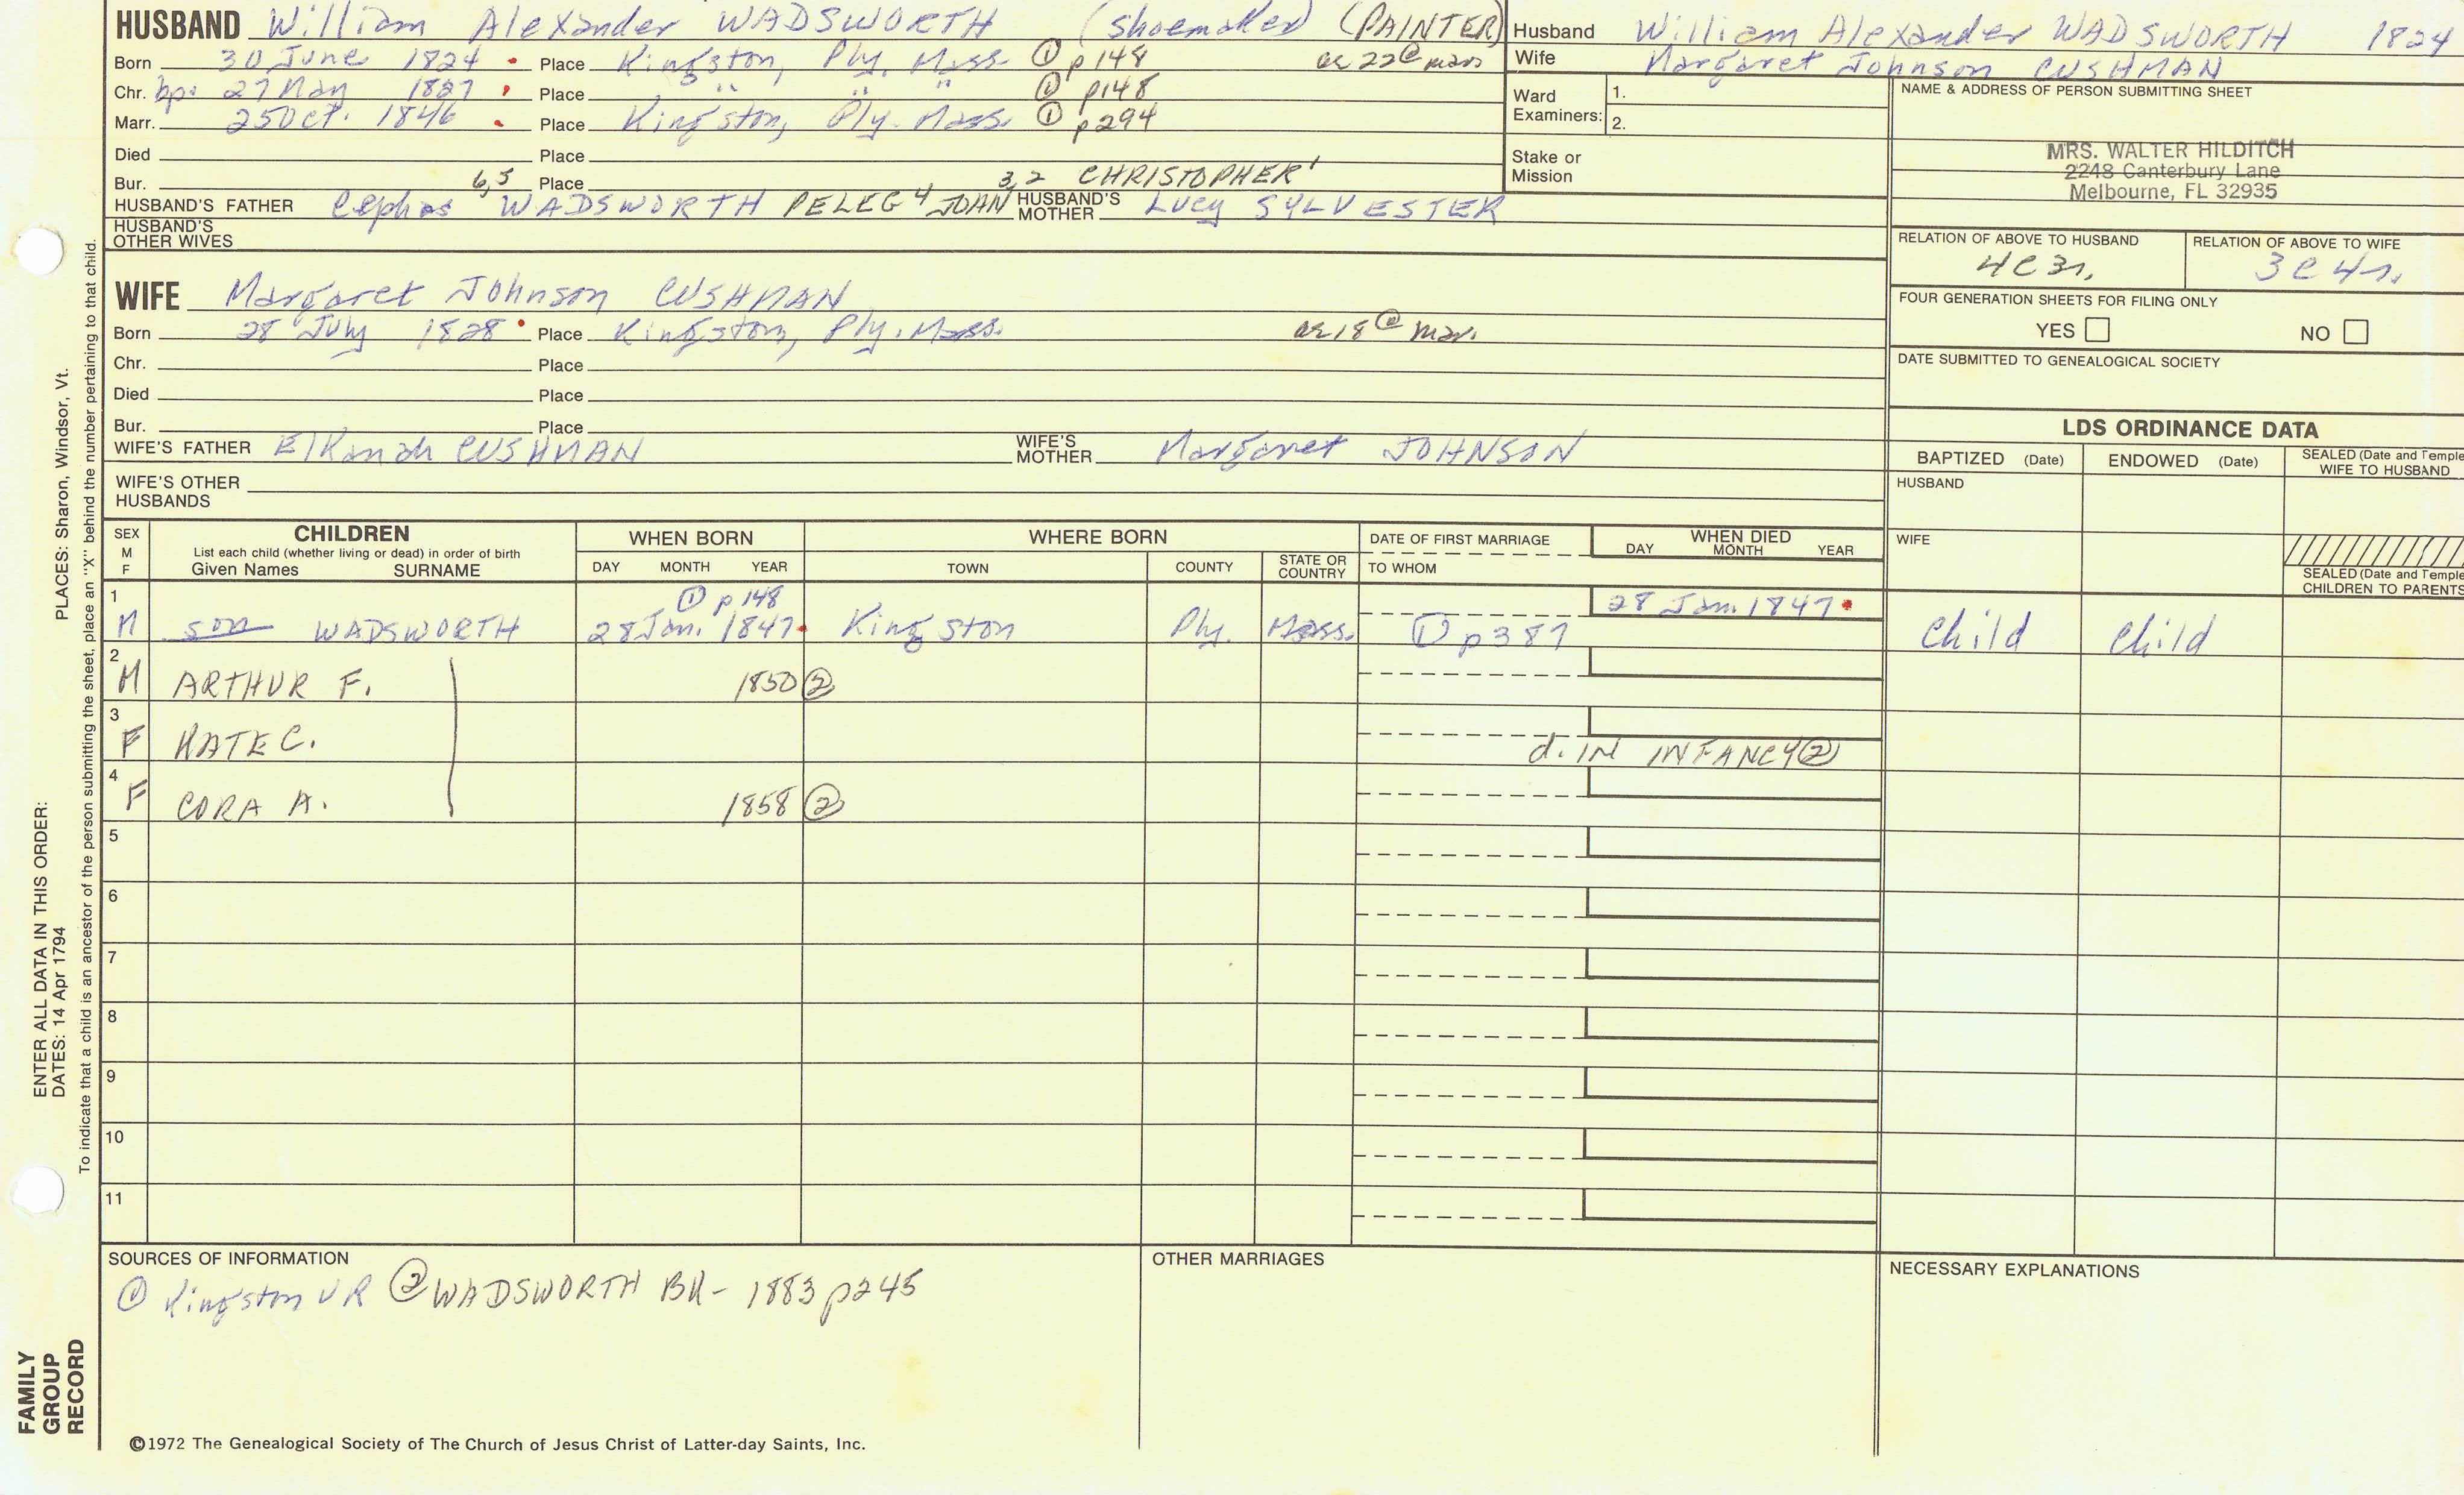 HUSBAND William Alexander WADSWORTH (shoemaker) (PAINTER)
Born 30 June 1824 Place Kingston, Ply. Mass. ① p148 ae 22 @ mar.
Chr. bp: 27 May 1827 Place " " " ① p148
Marr. 25 Oct. 1846 Place Kingston, Ply. Mass. ① p294
Died Place
Bur. Place
HUSBAND'S FATHER Cephas 6,5 WADSWORTH PELEG 4 JOHN 3,2 CHRISTOPHER 1 HUSBAND'S MOTHER Lucy SYLVESTER
HUSBAND'S OTHER WIVES
Husband William Alexander WADSWORTH 1824
Wife Margaret Johnson CUSHMAN
Ward Examiners: 1.
2.
Stake or Mission
NAME & ADDRESS OF PERSON SUBMITTING SHEET
MRS. WALTER HILDITCH
2248 Canterbury Lane
Melbourne, FL 32935
RELATION OF ABOVE TO HUSBAND RELATION OF ABOVE TO WIFE
4C3r. 3C4r.
FOUR GENERATION SHEETS FOR FILING ONLY
YES NO
DATE SUBMITTED TO GENEALOGICAL SOCIETY
WIFE Margaret Johnson CUSHMAN
Born 28 July 1828 Place Kingston, Ply. Mass. ae 18 @ mar.
Chr. Place
Died Place
Bur. Place
WIFE'S FATHER Elkanah CUSHMAN WIFE'S MOTHER Margaret JOHNSON
WIFE'S OTHER HUSBANDS
LDS ORDINANCE DATA
BAPTIZED (Date) ENDOWED (Date) SEALED (Date and Temple WIFE TO HUSBAND
HUSBAND
WIFE
SEALED (Date and Temple CHILDREN TO PARENTS
SEX M F CHILDREN WHEN BORN WHERE BORN DATE OF FIRST MARRIAGE WHEN DIED
List each child (whether living or dead) in order of birth
Given Names SURNAME DAY MONTH YEAR TOWN COUNTY STATE OR COUNTRY TO WHOM DAY MONTH YEAR
1 ① p148 28 Jan. 1847
M son WADSWORTH 28 Jan. 1847 Kingston Ply. Mass. ① p387 Child Child
2
M ARTHUR F. 1850 ②
3
F KATE C. d. IN INFANCY ②
4
F CORA A. 1858 ②
5
6
7
8
9
10
11
SOURCES OF INFORMATION
① Kingston VR ② WADSWORTH BK- 1883 p245
OTHER MARRIAGES
NECESSARY EXPLANATIONS
©1972 The Genealogical Society of The Church of Jesus Christ of Latter-day Saints, Inc.
ENTER ALL DATA IN THIS ORDER:
DATES: 14 Apr 1794 PLACES: Sharon, Windsor, Vt.
To indicate that a child is an ancestor of the person submitting the sheet, place an "X" behind the number pertaining to that child.
FAMILY
GROUP
RECORD